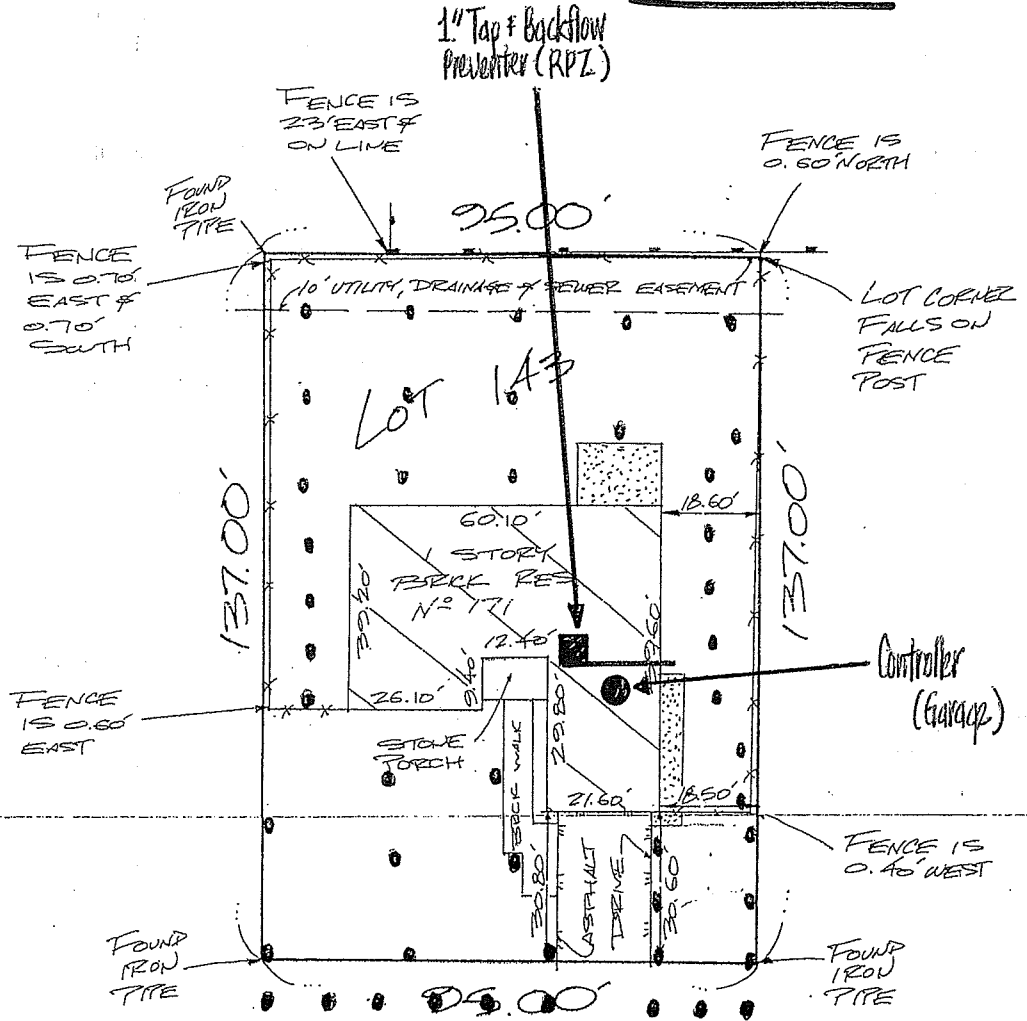 1" Tap & Backflow
Preventer (RPZ)
FENCE IS
23' EAST &
ON LINE
FENCE IS
0.60' NORTH
FOUND
IRON
PIPE
95.00'
FENCE
IS 0.70'
EAST &
0.70'
SOUTH
10' UTILITY, DRAINAGE & SEWER EASEMENT
LOT CORNER
FALLS ON
FENCE
POST
LOT 143
137.00'
137.00'
18.60'
60.10'
1 STORY
BRICK RES
Nº 171
39.20'
12.40'
9.40'
26.10'
29.80'
Controller
(Garage)
FENCE
IS 0.60'
EAST
STONE
PORCH
BRICK WALK
21.60'
18.50'
FENCE IS
0.40' WEST
30.80'
ASPHALT
DRIVE
30.60'
FOUND
IRON
PIPE
FOUND
IRON
PIPE
95.00'